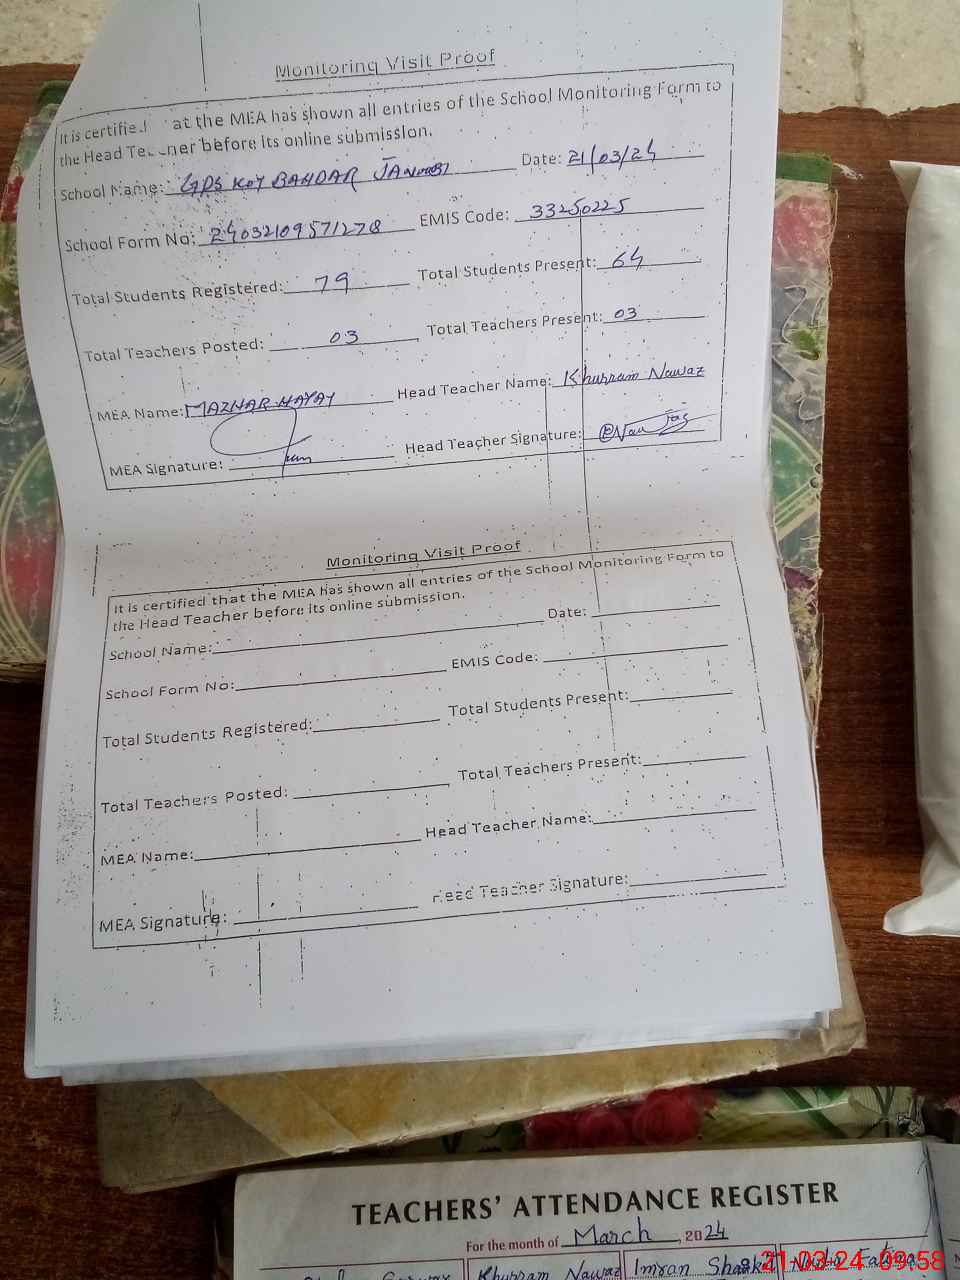 Monitoring Visit Proof
It is certified at the MEA has shown all entries of the School Monitoring Form to
the Head Teacher before its online submission.
School Name: GPS KOT BAHDAR JANOOBI Date: 21/03/24
School Form No: 24032109571278 EMIS Code: 33250225
Total Students Registered: 79 Total Students Present: 64
Total Teachers Posted: 03 Total Teachers Present: 03
MEA Name: MAZHAR HAYAT Head Teacher Name: Khurram Nawaz
MEA Signature: Head Teacher Signature:
Monitoring Visit Proof
It is certified that the MEA has shown all entries of the School Monitoring Form to
the Head Teacher before its online submission.
School Name: Date:
School Form No: EMIS Code:
Total Students Registered: Total Students Present:
Total Teachers Posted: Total Teachers Present:
MEA Name: Head Teacher Name:
MEA Signature: Head Teacher Signature:
TEACHERS' ATTENDANCE REGISTER
For the month of March, 2024
Khurram Nawaz Imran Shaukat Fatima
21-03-24 09:58